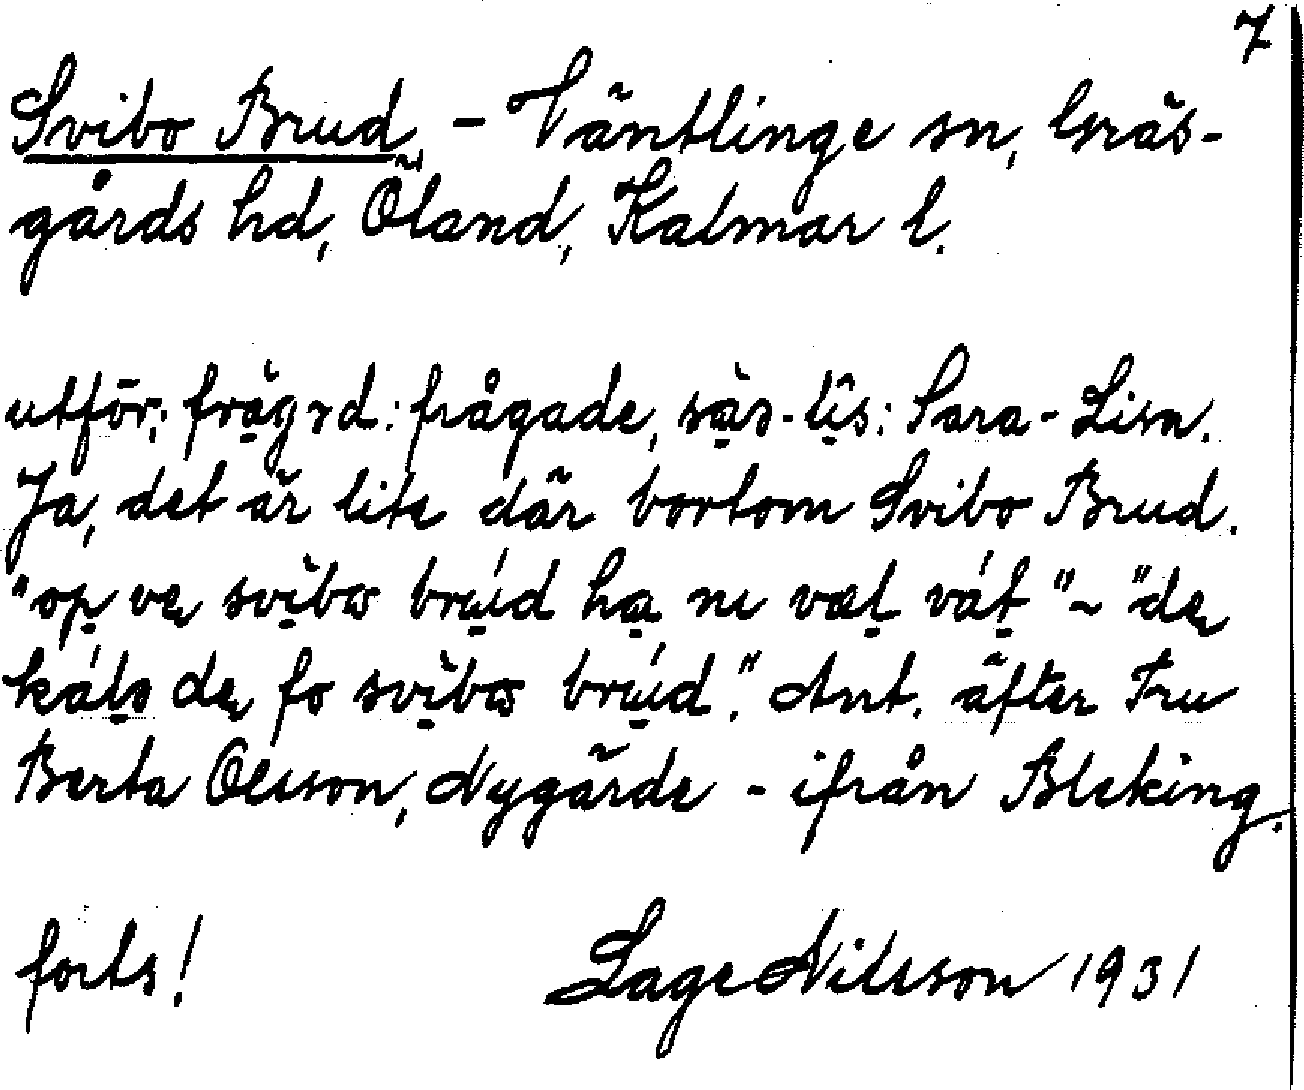 7
Svibo Brud, - Väntlinge sn, Gräs-
gårds hd, Öland, Kalmar l.
utför; frågad: frågade, sas-lis: Sara-Lisa.
Ja, det är lite där bortom Svibo Brud.
"op ve svibo brúd ha nu væt våt" ~ "de
kálo de fo svibo brúd". Ant. äfter Fru
Berta Olsson, Nygärde - ifrån Bleking.
forts! Sage Nilsson 1931